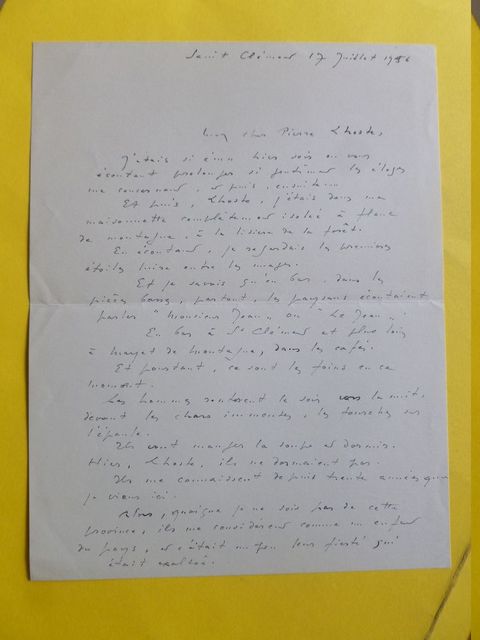 Saint Clément 17 Juillet 19
Mon cher Pierre Lhoste,
J'étais si ému hier soir en vous
écoutant prolonger si gentiment les éloges
me concernant, et puis, ensuite...
Et puis, Lhoste, j'étais dans ma
maisonnette complètement isolée à flanc
de montagne, à la lisière de la forêt.
En écoutant, je regardais les premières
étoiles luire entre les nuages.
Et je savais qu'en bas, dans les
pièces basses, partout, les paysans écoutaient
parler "Monsieur Jean" ou "Le Jean".
En bas à St Clément et plus loin
à Mayet de montagne, dans les cafés.
Et pourtant, ce sont les foins en ce
moment.
Les hommes rentrent le soir vers la nuit,
devant les chars immenses, les fourches sur
l'épaule.
Ils vont manger la soupe et dormir.
Hier, Lhoste, ils ne dormaient pas.
Ils me connaissent depuis trente années que
je viens ici.
Alors, quoique je ne sois pas de cette
province, ils me considèrent comme un enfant
du pays, et c'était un peu leur fierté qui
était exaltée.